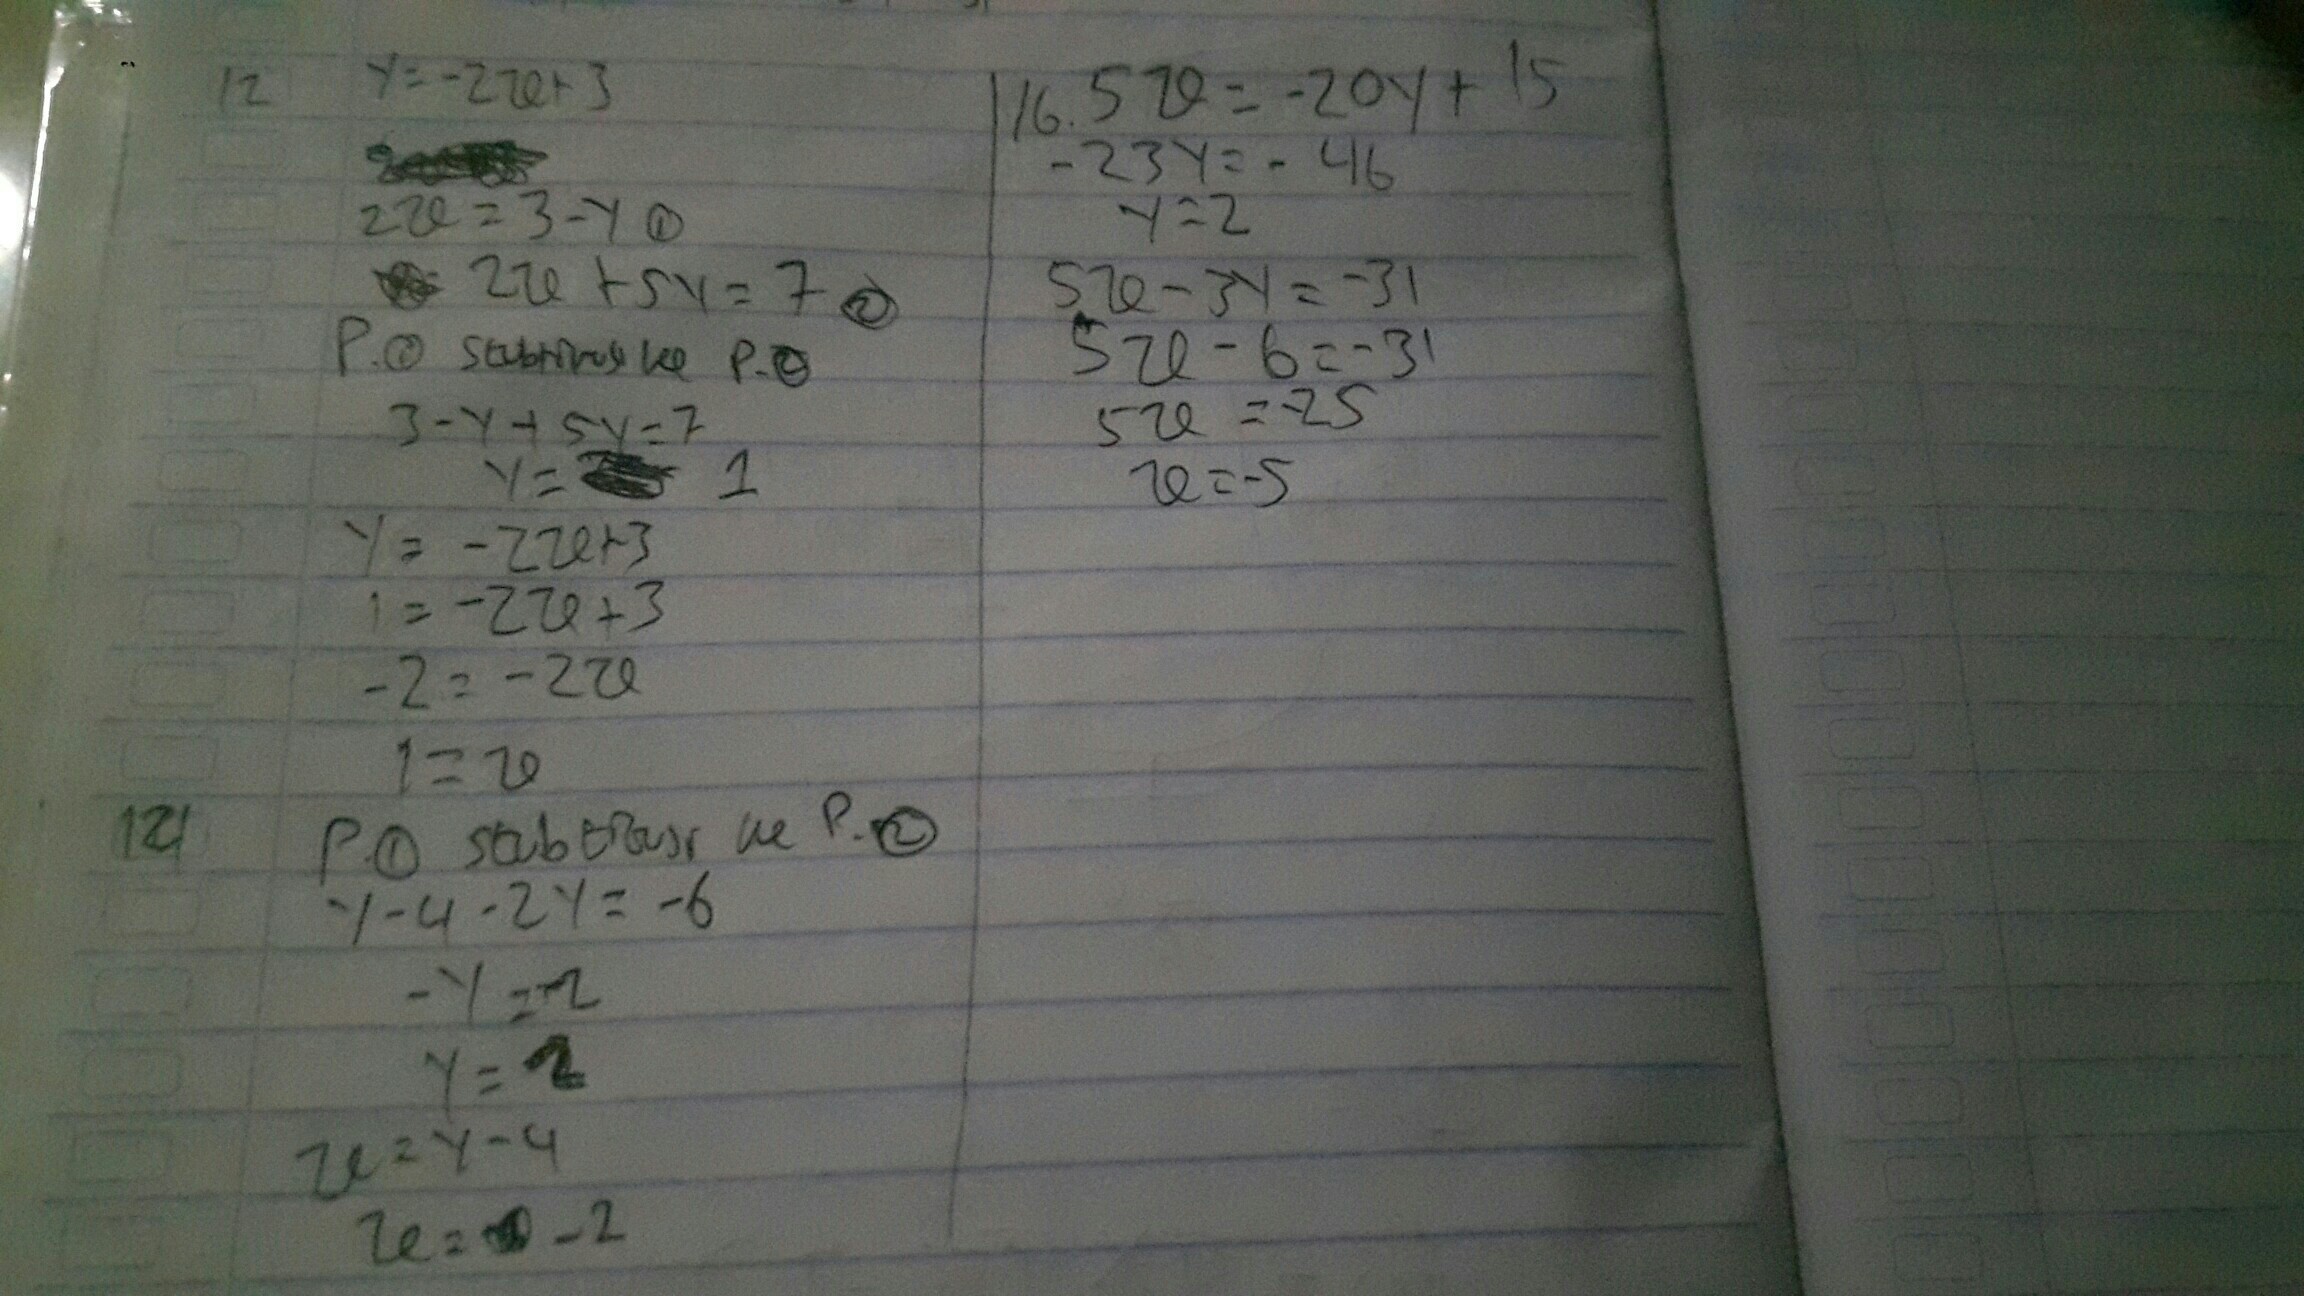 12 y=-2x+3
2x=3-y ①
2x+5y=7 ②
P.① subtitusi ke P.②
3-y+5y=7
y= 1
y=-2x+3
1=-2x+3
-2=-2x
1=x
P.① ke P.②
y-4-2y=-6
-y=-2
y=2
x=y-4
x=-2
16. 5x=-20y+15
-23y=-46
y=2
5x-3y=-31
5x-6=-31
5x=-25
x=-5